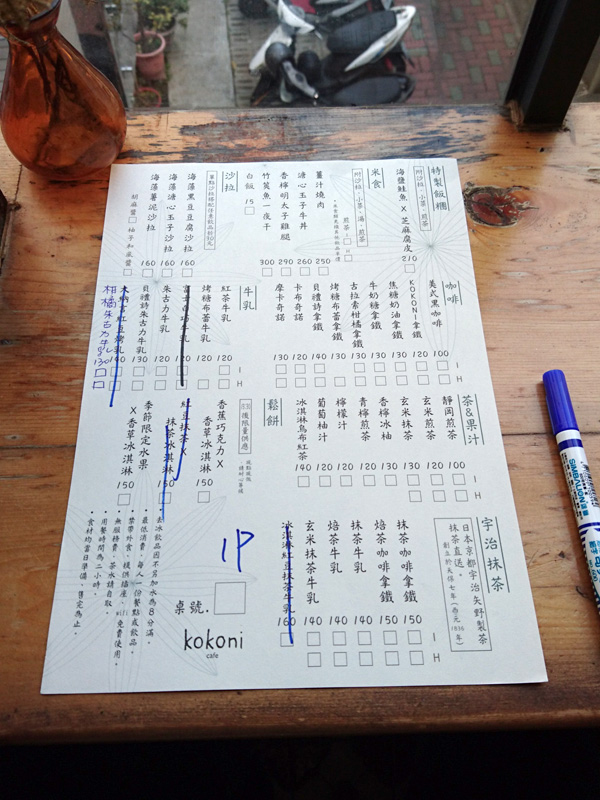 特製飯糰
附沙拉、小菜、煎茶
海鹽鮭魚X芝麻腐皮 210
米食
附沙拉、小菜、湯、煎茶
薑汁燒肉 250
溏心玉子牛丼 260
香檸明太子雞腿 290
竹筴魚一夜干 300
白飯 15
沙拉
海藻黑豆豆腐沙拉 160
海藻溏心玉子沙拉 160
海藻薯泥沙拉 160
胡麻醬 柚子和風醬
咖啡
美式黑咖啡 100
KOKONI拿鐵 120
焦糖奶油拿鐵 130
牛奶糖拿鐵 130
古拉索柑橘拿鐵 130
烤糖布蕾拿鐵 130
貝禮詩拿鐵 140
卡布奇諾 120
摩卡奇諾 130
I
H
牛乳
紅茶牛乳 120
烤糖布蕾牛乳 120
富士山巧牛乳 120
朱古力牛乳 120
貝禮詩朱古力牛乳 130
柑橘朱古力牛乳130
I
H
茶&果汁
靜岡煎茶 100
玄米煎茶 120
玄米抹茶 130
香檸冰柚 130
青檸煎茶 120
檸檬汁 120
葡萄柚汁 120
冰淇淋烏布紅茶 140
I
H
鬆餅
後限量供應
香蕉巧克力X
香草冰淇淋 150
紅豆抹茶X
抹茶冰淇淋 150
季節限定水果
X香草冰淇淋 150
宇治抹茶
日本京都宇治矢野製茶
抹茶直送
創立於天保七年(西元1836年)
抹茶咖啡拿鐵 150
焙茶咖啡拿鐵 150
抹茶牛乳 140
焙茶牛乳 140
玄米抹茶牛乳 140
冰淇淋紅豆抹茶牛乳 160
I
H
1P
桌號.
kokoni
cafe
・去冰飲品因不另加水為8分滿。
・最低消費,每人一份餐點或飲品。
・禁帶外食,提供插座、wifi免費使用。
・無服務費,茶水請自取。
・用餐時間為二小時。
・食材均當日準備,售完為止。